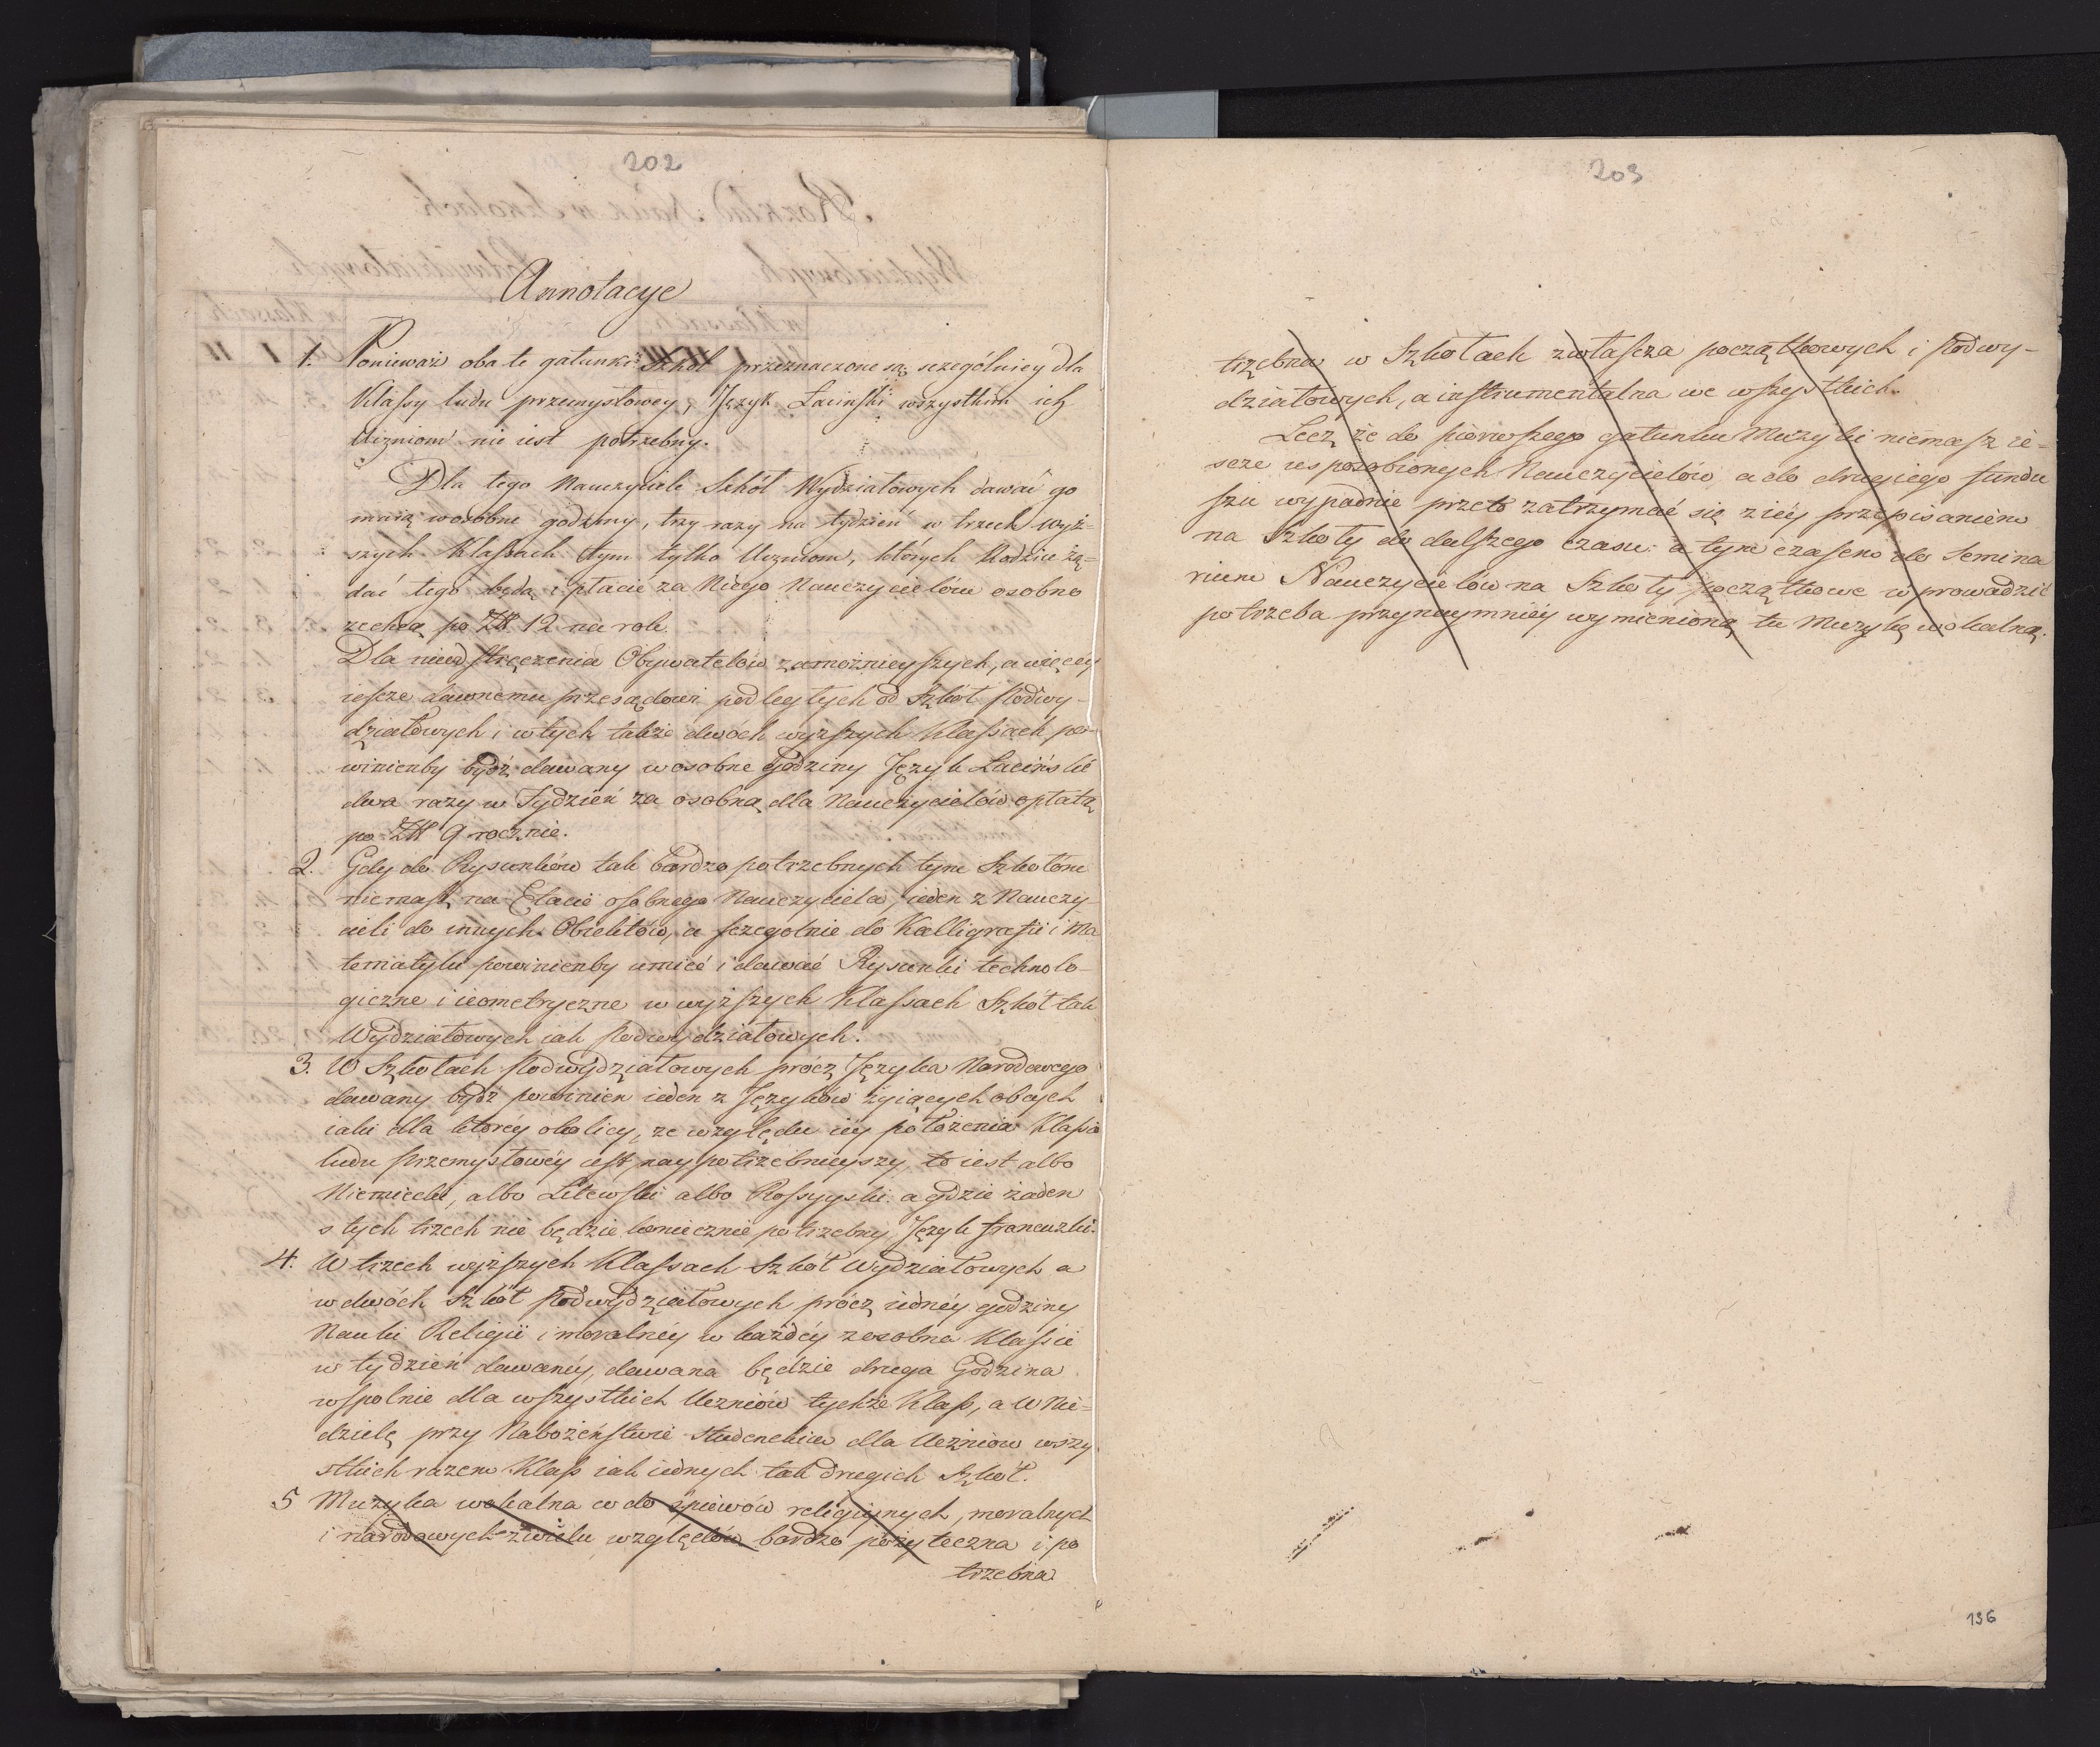 202
Annotacye
1. Ponieważ oba te gatunki Szkół przeznaczone są szczególniey dla
Klassy ludu przemysłowey, Język Łaciński wszystkim ich
Uczniom nie iest potrzebny.
Dla tego Nauczyciele Szkół Wydziałowych dawać go
maią w osobne godziny, trzy razy na tydzień w trzech wyż=
szych Klassach tym tylko Uczniom, których Rodzice żą=
dać tego będą i płacić za Niego Nauczycielom osobno
zechcą po Zł. 12 na rok.
Dla nieodstręczenia Obywatelów zamożnieyszych, a więcéy
ieszcze dawnemu przesądowi podległych od Szkół Podwy-
działowych i w tych także dwóch wyższych Klassach po-
winienby bydź dawany w osobne Godziny Język Łaciński
dwa razy w Tydzień za osobną dla Nauczycielów opłatą
po Zł 9 rocznie.
2. Gdy do Rysunków tak bardzo potrzebnych tym Szkołom
niemasz na Etacie osobnego Nauczyciela, ieden z Nauczy-
cieli do innych Obiektów, a szczegolnie do Kalligrafii i Ma
tematyki powinienby umieć i dawać Rysunki technolo-
giczne i ieometryczne w wyższych Klassach Szkół tak
Wydziałowych iak Podwydziałowych.
3. W Szkołach Podwydziałowych prócz Języka Narodowego
dawany bydź powinien ieden z Języków żyiących obcych
iaki dla któréy okolicy, ze względu iéy położenia Klassie
ludu przemysłowéy iest naypotrzebnieyszy, to iest albo
Niemiecki, albo Litewski albo Rossyyski: a gdzie żaden
s tych trzech nie będzie koniecznie potrzebny Język francuzki.
4. W trzech wyższych Klassach Szkół Wydziałowych a
w dwóch Szkół Podwydziałowych prócz iednéy godziny
Nauki Religii i moralnéy w każdéy zosobna Klassie
w tydzień dawanéy, dawana będzie druga Godzina
wspolnie dla wszystkich Uczniów tychże Klass, a w Nie=
dzielę przy Nabożeństwie studenckim dla Uczniow wszy
stkich razem Klass iak iednych tak drugich Szkół.
5 Muzyka wokalna co do śpiewów religiynych, moralnych
i narodowych z wielu względów bardzo pożyteczna i po
trzebna
203
trzebna w Szkołach zwłaszcza początkowych i Podwy-
działowych, a instrumentalna we wszystkich.
Lecz że do pierwszego gatunku Muzyki niemasz ie=
szcze usposobionych Nauczycielów, a do drugiego fundu
szu wypadnie przeto zatrzymać się z iéy przepisaniem
na Szkoły do dalszego czasu: a tym czasem do Semina
rium Nauczycielów na Szkoły początkowe wprowadzić
potrzeba przynaymniéy wymienioną tu Muzykę wokalną.
136